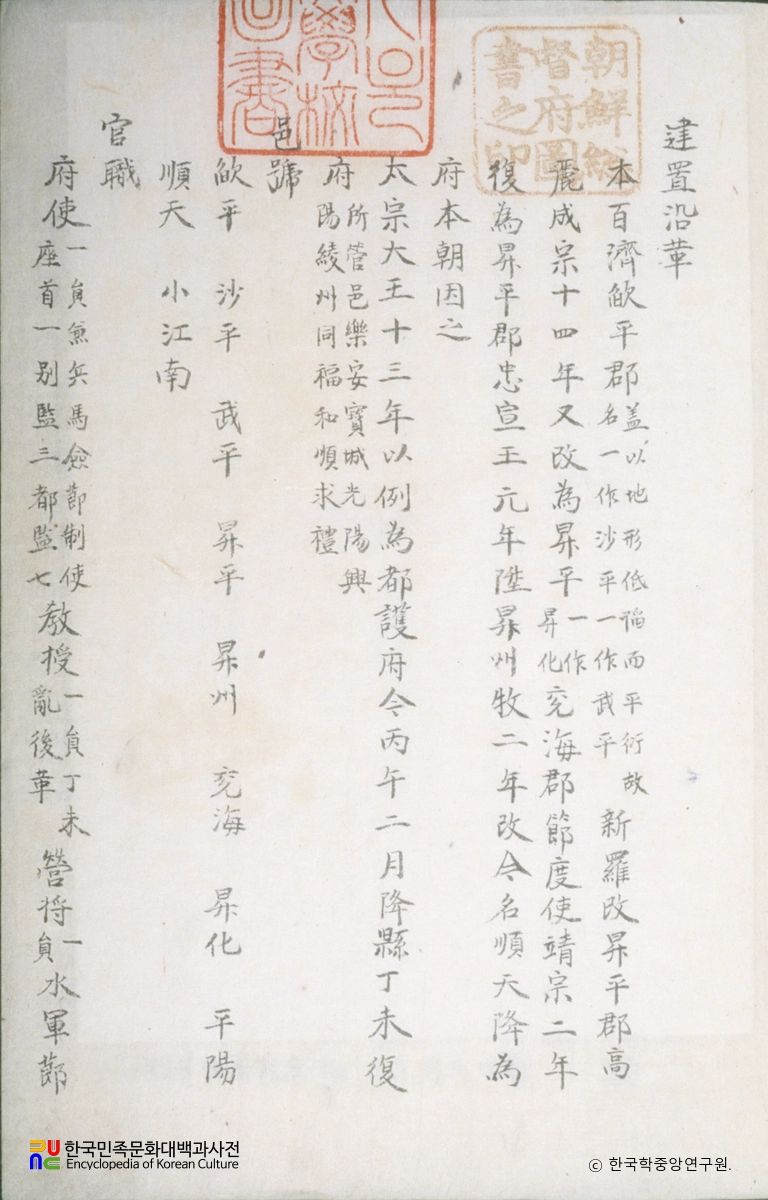 建置沿革
本百濟歃平郡盖以地形低謟而平衍故名一作沙平一作武平新羅改昇平郡高
麗成宗十四年又改為昇平一作昇化兗海郡節度使靖宗二年
復為昇平郡忠宣王元年陞昇州牧二年改今名順天降為
府本朝因之
太宗大王十三年以例為都護府今丙午二月降縣丁未復
府所管邑樂安寶城光陽興陽綾州同福和順求禮
邑號
歃平 沙平 武平 昇平 昇州 兗海 昇化 平陽
順天 小江南
官職
府使一員兼兵馬僉節制使座首一別監三都監七教授一員丁未亂後革營將一員水軍節
朝鮮總督府圖書之印
學校圖書
한국민족문화대백과사전
Encyclopedia of Korean Culture
© 한국학중앙연구원.